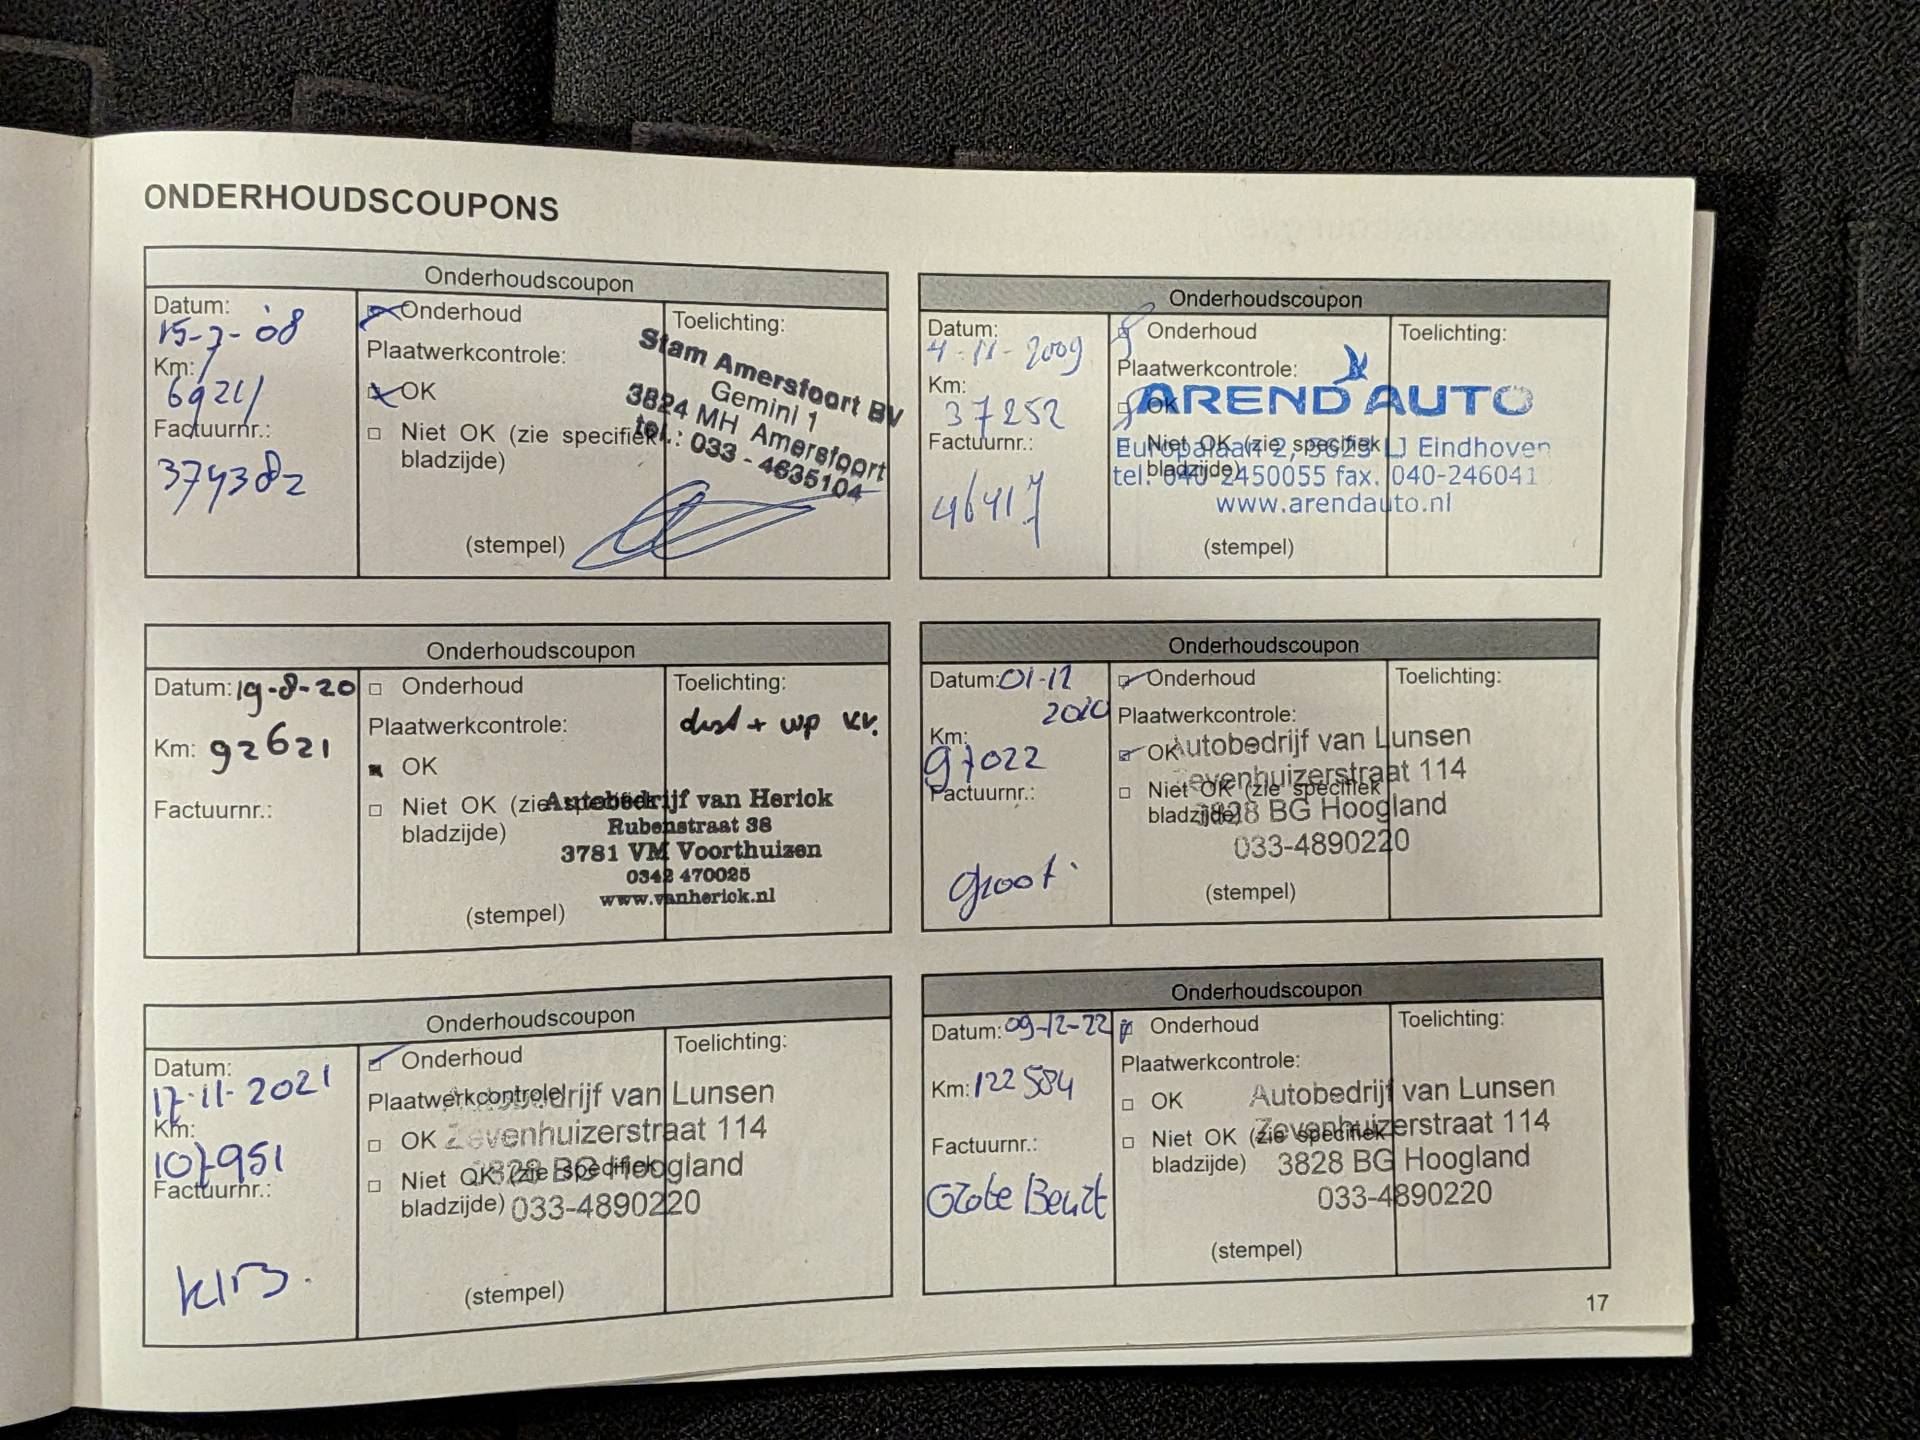 ONDERHOUDSCOUPONS
Onderhoudscoupon
Datum:
15-7-'08
Km:
6921
Factuurnr.:
374382
Onderhoud
Plaatwerkcontrole:
OK
Niet OK (zie specifiek
bladzijde)
(stempel)
Toelichting:
Stam Amersfoort BV
Gemini 1
3824 MH Amersfoort
tel.: 033 - 4635104
Onderhoudscoupon
Datum:
4-11-2009
Km:
37252
Factuurnr.:
46417
Onderhoud
Plaatwerkcontrole:
OK
Niet OK (zie specifiek
bladzijde)
(stempel)
Toelichting:
AREND AUTO
Europalaan 2, 5623 LJ Eindhoven
tel. 040-2450055 fax. 040-246041
www.arendauto.nl
Onderhoudscoupon
Datum: 19-8-20
Km: 92621
Factuurnr.:
Onderhoud
Plaatwerkcontrole:
OK
Niet OK (zie specifiek
bladzijde)
(stempel)
Toelichting:
+ wp v.v.
Autobedrijf van Herick
Rubenstraat 38
3781 VM Voorthuizen
0342 470025
www.vanherick.nl
Onderhoudscoupon
Datum: 01-12
2020
Km:
97022
Factuurnr.:
groot
Onderhoud
Plaatwerkcontrole:
OK
Niet OK (zie specifiek
bladzijde)
(stempel)
Toelichting:
Autobedrijf van Lunsen
Zevenhuizerstraat 114
3828 BG Hoogland
033-4890220
Onderhoudscoupon
Datum:
17-11-2021
Km:
107951
Factuurnr.:
Onderhoud
Plaatwerkcontrole:
OK
Niet OK (zie specifiek
bladzijde)
(stempel)
Toelichting:
Autobedrijf van Lunsen
Zevenhuizerstraat 114
3828 BG Hoogland
033-4890220
Onderhoudscoupon
Datum: 09-12-22
Km: 122584
Factuurnr.:
Grote Beurt
Onderhoud
Plaatwerkcontrole:
OK
Niet OK (zie specifiek
bladzijde)
(stempel)
Toelichting:
Autobedrijf van Lunsen
Zevenhuizerstraat 114
3828 BG Hoogland
033-4890220
17